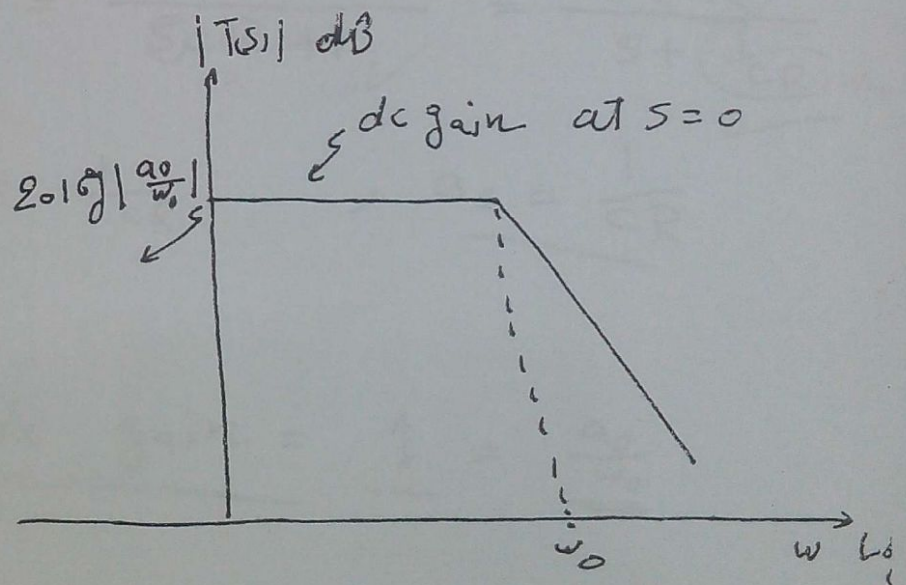 |T(s)| dB
dc gain at s=0
20 log|a0/w0|
w0
w